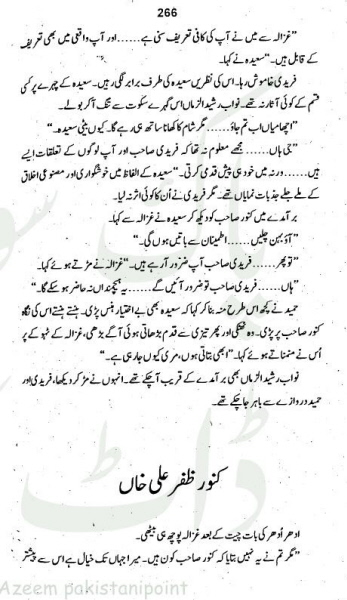 266
”غزالہ سے میں نے آپ کی کافی تعریف سنی ہے......اور آپ واقعی میں بھی تعریف
کے قابل ہیں۔“ سعیدہ نے کہا۔
فریدی خاموش رہا۔ اس کی نظریں سعیدہ کی طرف برابر لگی رہیں۔ سعیدہ کے چہرے پر کسی
قسم کے کوئی آثار نہ تھے۔ نواب رشید الزماں اس گہرے سکوت سے تنگ آکر بولے۔
”اچھا میاں اب تم جاؤ......مگر شام کا کھانا ساتھ ہی رہے گا۔ کیوں بیٹی سعیدہ۔“
”جی ہاں......مجھے معلوم نہ تھا کہ فریدی صاحب اور آپ لوگوں کے تعلقات ایسے
ہیں......ورنہ میں خود ہی پیش قدمی کرتی۔“ سعیدہ کے الفاظ میں خوشگواری اور مصنوعی اخلاق
کے ملے جلے جذبات نمایاں تھے۔ مگر فریدی نے اُن کا کوئی اثر نہ لیا۔
برآمدے میں کنور صاحب کو دیکھ کر سعیدہ نے غزالہ سے کہا۔
”آؤ بہن چلیں......اطمینان سے باتیں ہوں گی۔“
”تو پھر......فریدی صاحب آپ ضرور آ رہے ہیں۔“ غزالہ نے مڑتے ہوئے کہا۔
”ہاں......فریدی صاحب تو ضرور آئیں گے......یہ ہیچمنداں نہ حاضر ہوسکے گا۔“
حمید نے کچھ اس طرح منہ بنا کر کہا کہ سعیدہ بھی بے اختیار ہنس پڑی۔ ہنستے ہنستے اس کی نگاہ
کنور صاحب پر پڑی۔ وہ ٹھٹکی اور پھر تیزی سے قدم بڑھاتی ہوئی آگے بڑھی، غزالہ کے ٹہوکے پر
اُس نے منمناتے ہوئے کہا۔ ”ابھی بتاتی ہوں، مری کیوں جا رہی ہے۔“
نواب رشید الزماں بھی برآمدے کے قریب آ چکے تھے۔ انہوں نے مڑ کر دیکھا، فریدی اور
حمید دروازے سے باہر جا چکے تھے۔
کنور ظفر علی خاں
ادھر اُدھر کی بات چیت کے بعد غزالہ پوچھ ہی بیٹھی۔
”مگر تم نے یہ نہیں بتایا کہ کنور صاحب کون ہیں۔ میرا جہاں تک خیال ہے اس سے پیشتر
Azeem pakistanipoint